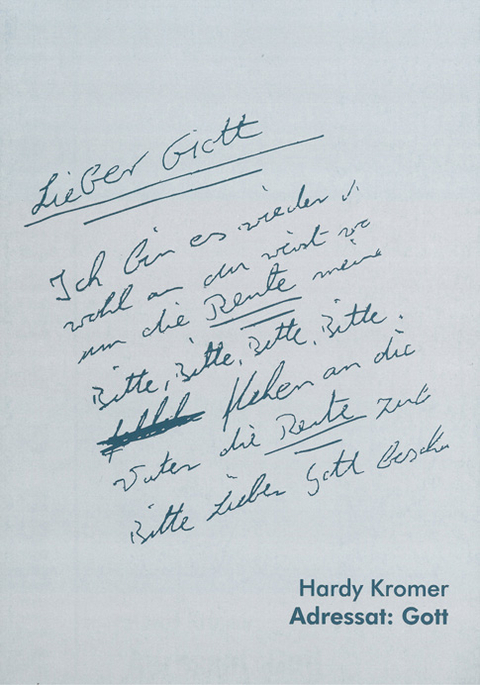 Lieber Gott
Ich bin es wieder
wohl an du weist wo
um die Rente meine
Bitte, Bitte, Bitte, Bitte.
flehen an die
Vater die Rente zur
Bitte Lieber Gott besche
Hardy Kromer
Adressat: Gott